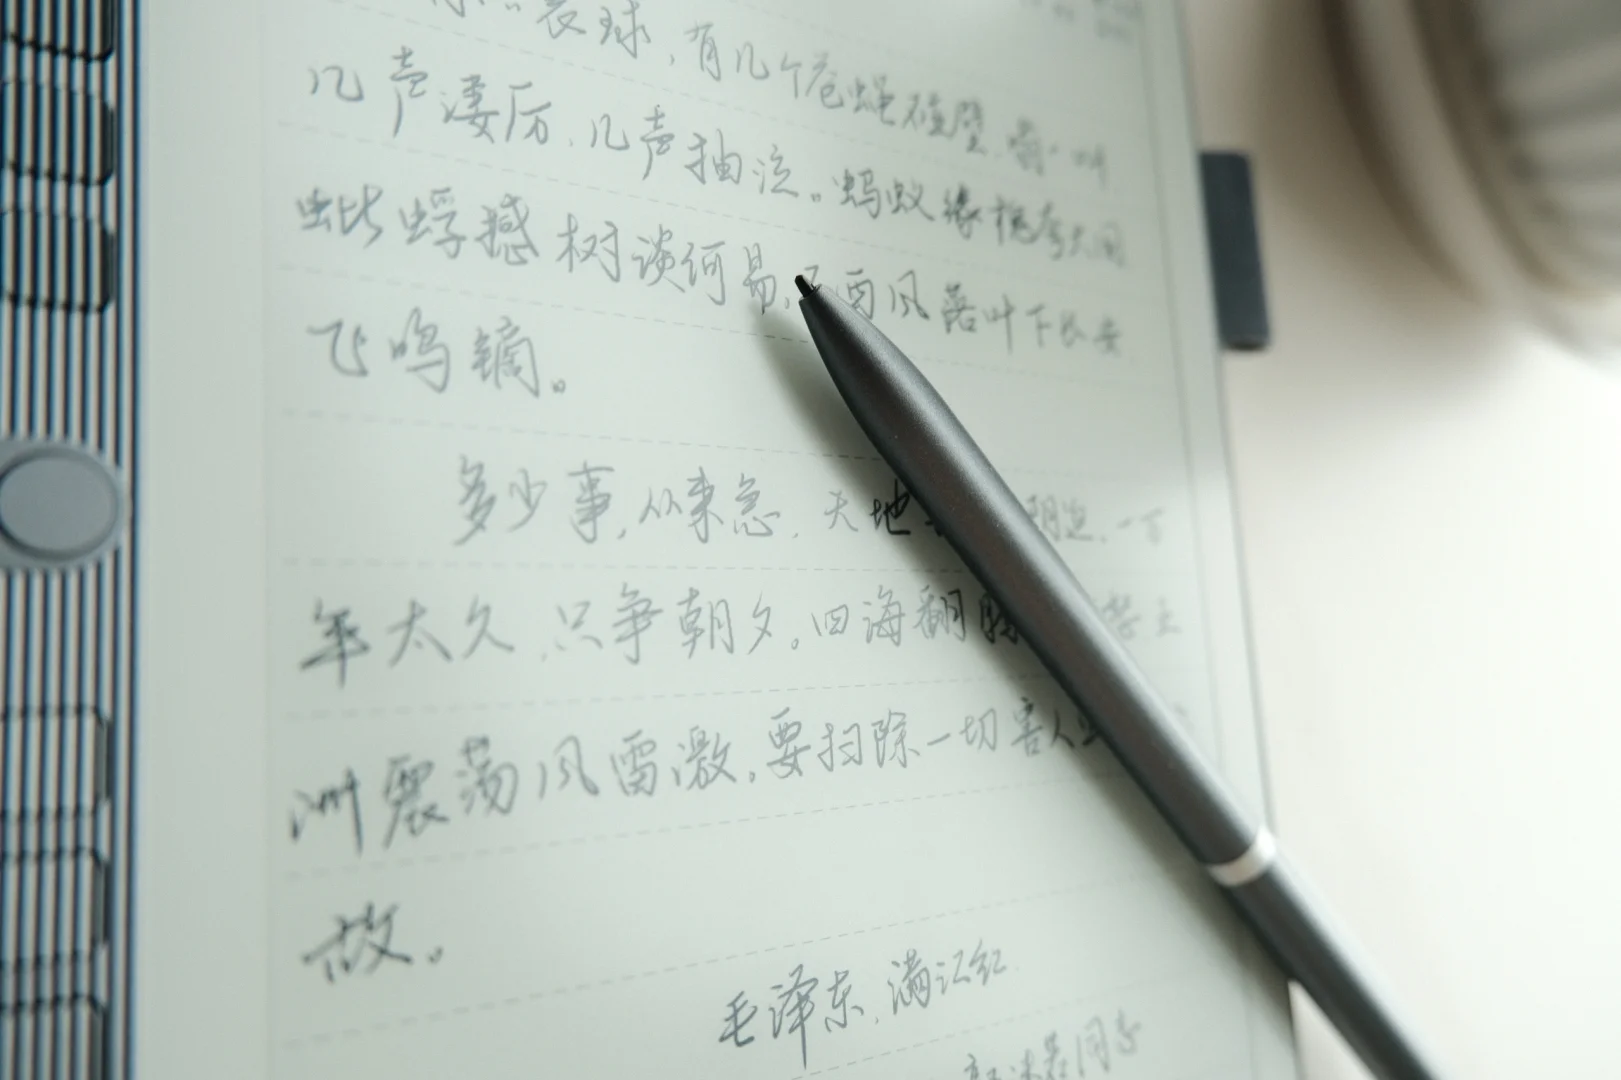 球，有几个苍蝇碰壁。嗡嗡叫
几声凄厉，几声抽泣。蚂蚁缘槐夸大国
蚍蜉撼树谈何易，西风落叶下长安
飞鸣镝。
多少事，从来急，天地 一万
年太久，只争朝夕。四海翻腾
洲震荡风雷激，要扫除一切害人
敌。
毛泽东，满江红
同志